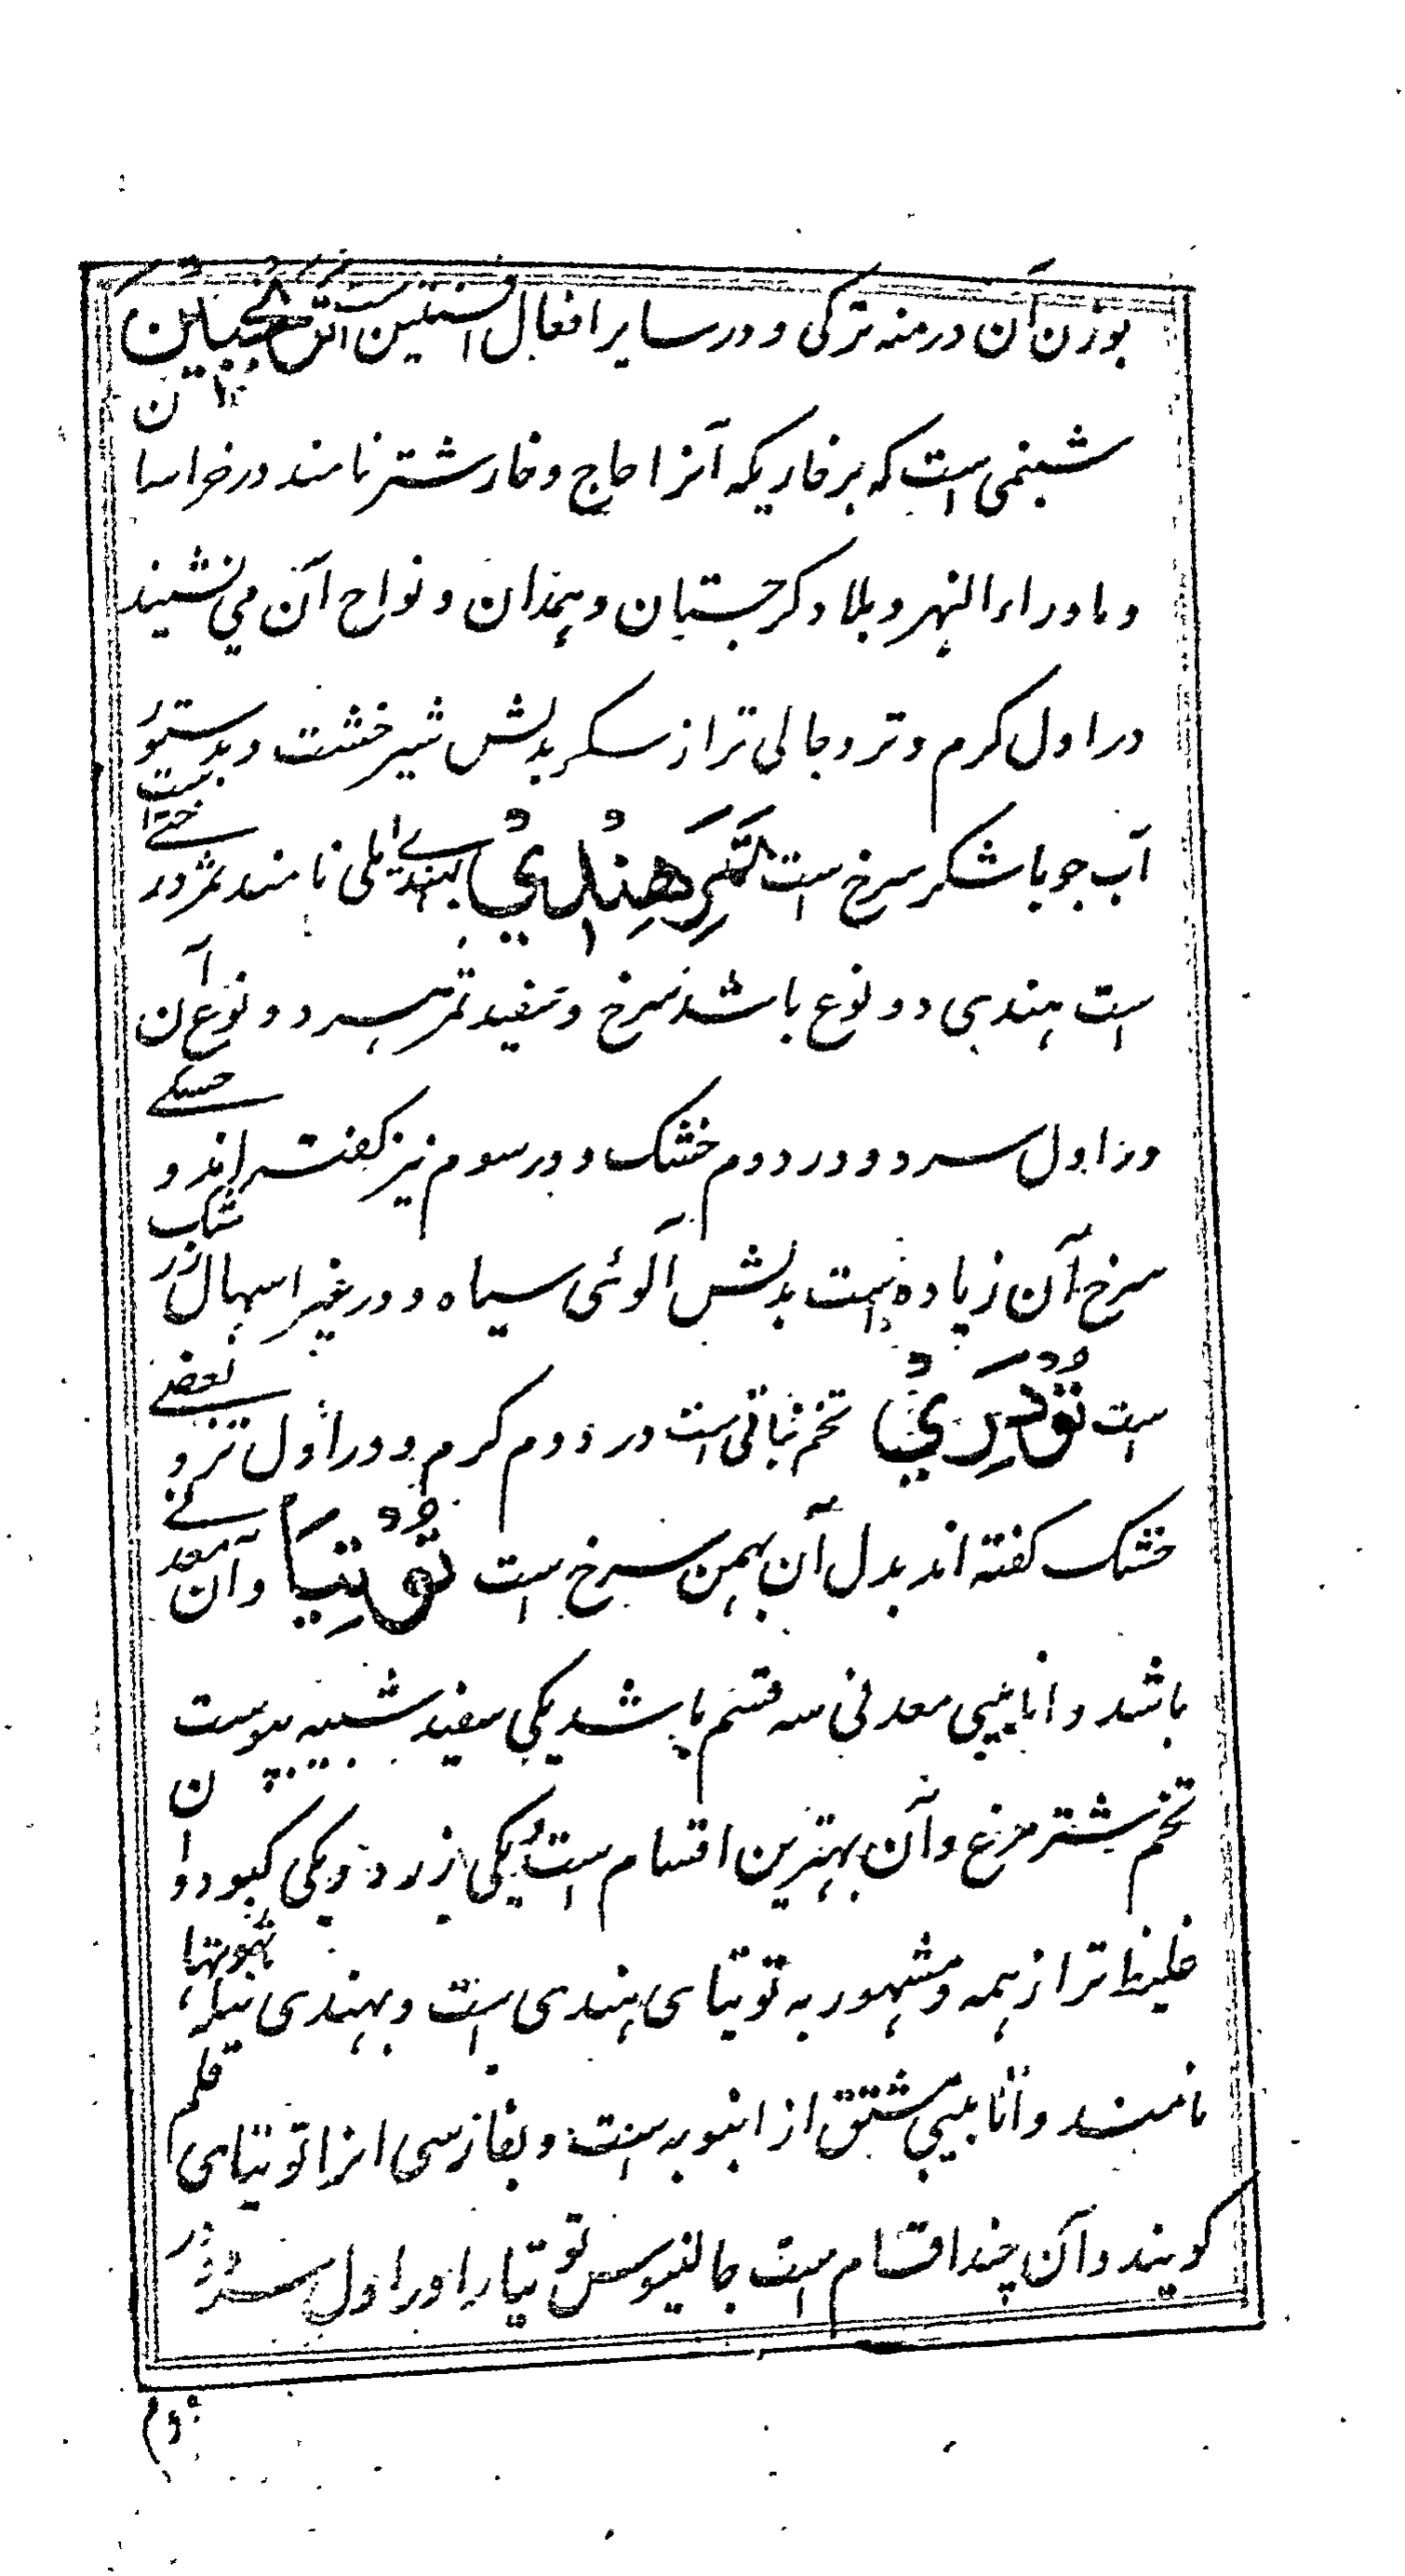 بوزن آن درمنه ترکی و در سایر افعال افسنتین است ترنجبین
شبنمی است که بر خاریکه آنرا حاج و خارشتر نامند در خراسان
و ماوراء النهر و بلاد کرجستان و همدان و نواح آن می نشیند
در اول کرم و تر و جالی تر از سکر بدلش شیر خشت و بدستور
آب جو با شکر سرخ است تَمَرِ هِنْدِيْ بهندی املی نامند ثمر درختی است
است هندی دو نوع باشد سرخ و سفید ثمر هر دو نوع آن
در اول سرد و در دوم خشک و در سوم نیز کفته اند و خشکی
سرخ آن زیاده است بدلش آلوئی سیاه و در غیر اسهال زرشک
است تُوْدَرِيْ تخم نباتی است در دوم کرم و در اول تر و بعضی
خشک کفته اند بدل آن بهمن سرخ است تُوْتِيَا و آن معدنی
باشد و انابیبی معدنی سه قسم باشد یکی سفید شبیه بپوست
تخم شتر مرغ و آن بهترین اقسام است و یکی زرد و یکی کبود و آن
غلیظ تر از همه و مشهور به توتیای هندی است و بهندی نیله تهوتها
نامند و انابیبی مشتق از انبوبه است و بفارسی انرا توتیای قلم
کویند و آن چند اقسام است جالنیوس توتیا را در اول سرد و در
دوم